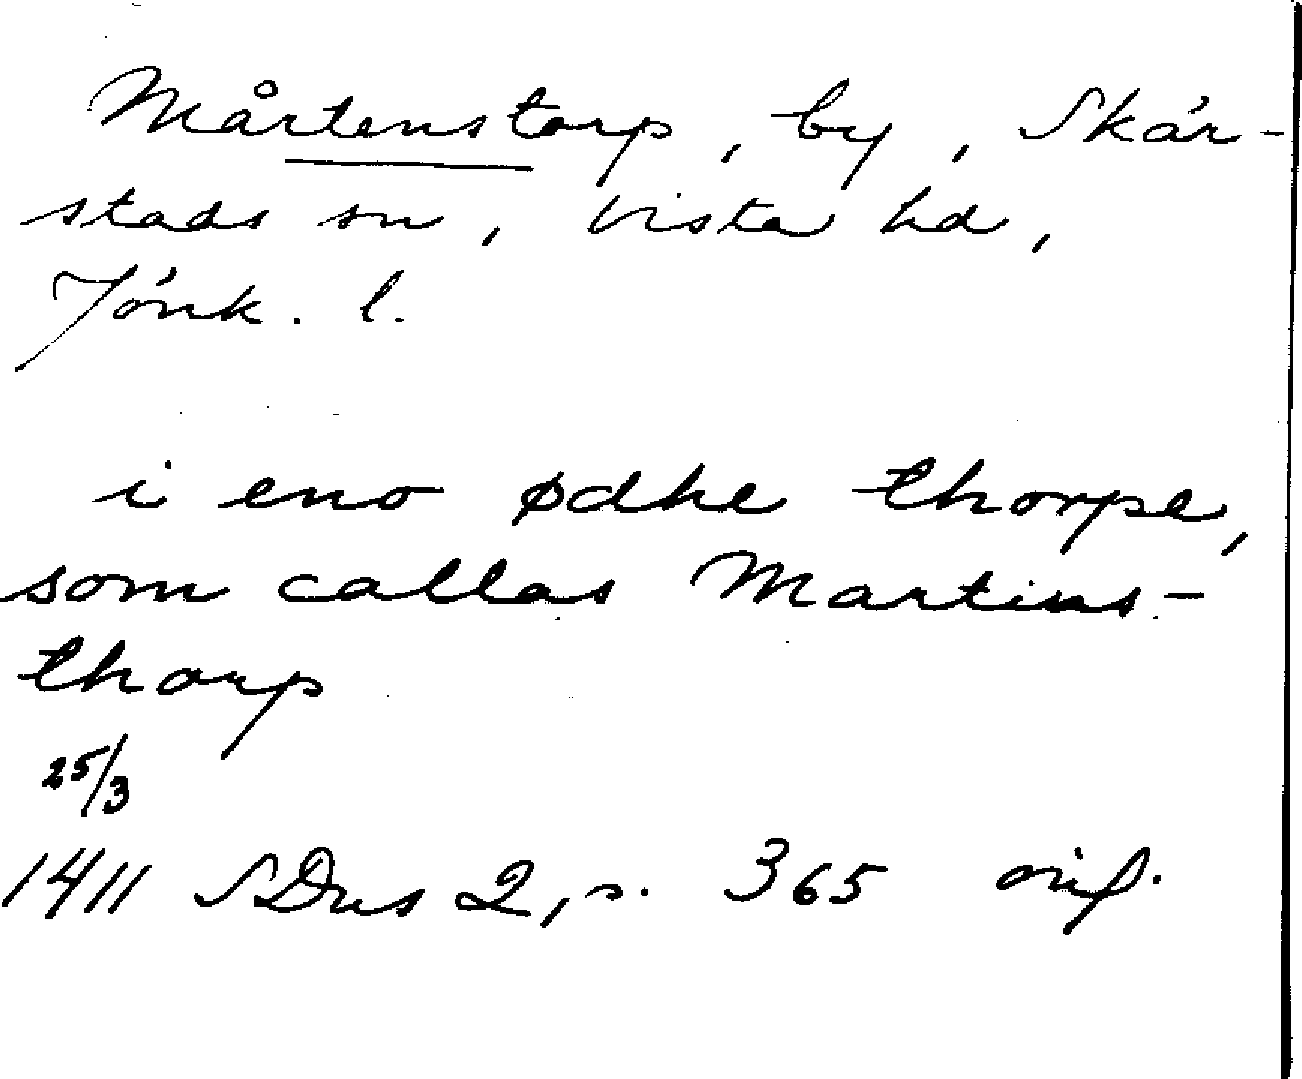 Mårtenstorp, by, Skär-
stads sn, Vista hd,
Jönk. l.
i eno ødhe thorpe,
som callas Martins-
thorp
25/3
1411 SDns 2, s. 365 orig.